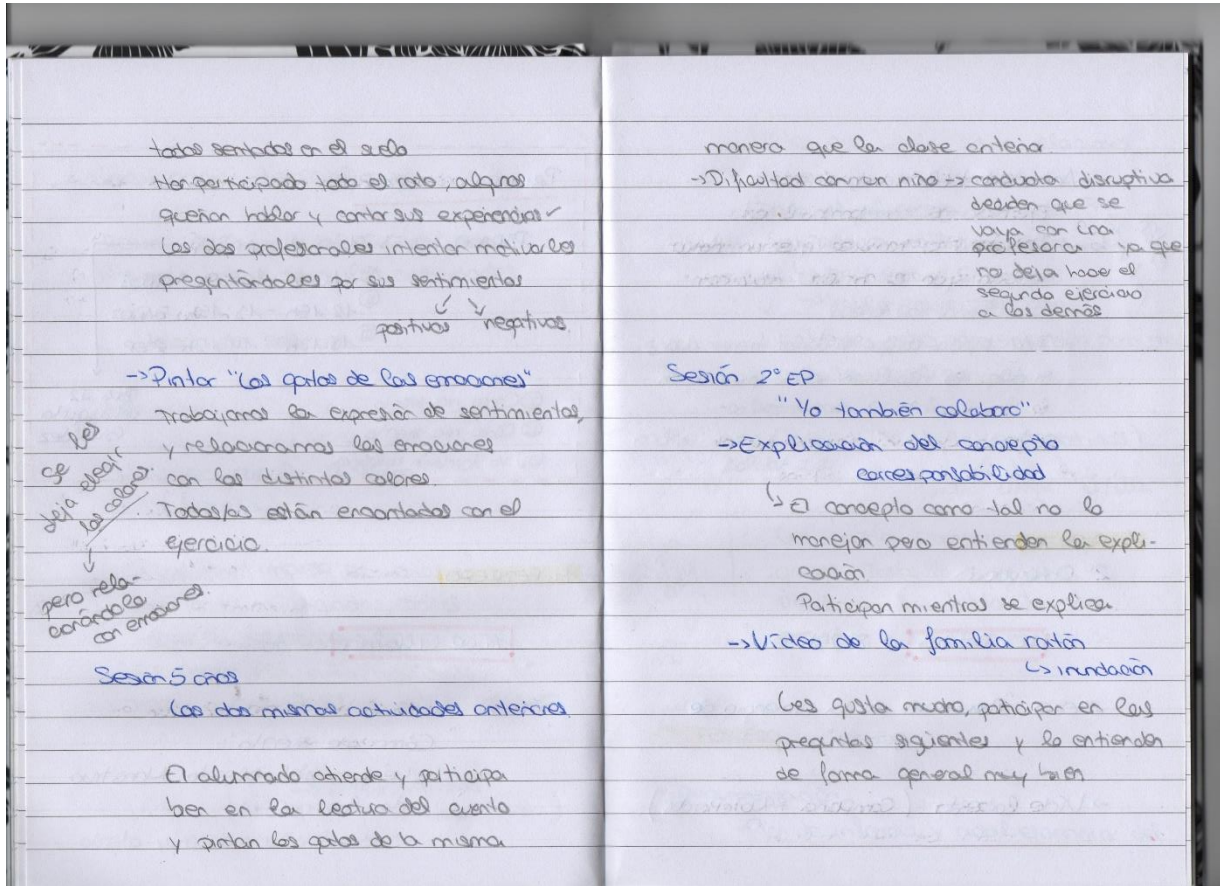 todos sentados en el suelo
Han participado todo el rato, algunos
querían hablar y contar sus experiencias
Las dos profesionales intentan motivarles
preguntándoles por sus sentimientos
positivos negativos
→ Pintar "Los gatos de las emociones"
Trabajamos la expresión de sentimientos,
y relacionamos las emociones
con los distintos colores.
Todos/as están encantados con el
ejercicio.
se les
deja elegir
los colores.
pero rela-
cionándolo
con emociones.
Sesión 5 años
Las dos mismas actividades anteriores.
El alumnado atiende y participa
bien en la lectura del cuento
y pintan los gatos de la misma
manera que la clase anterior
→ Dificultad con un niño → conducta disruptiva
deciden que se
vaya con una
profesora ya que
no deja hace el
segundo ejercicio
a los demás
Sesión 2º EP
"Yo también colaboro"
→ Explicación del concepto
corresponsabilidad
↳ El concepto como tal no lo
manejan pero entienden la expli-
cación
Participan mientras se explica
→ Vídeo de la familia ratón
↳ inundación
Les gusta mucho, participan en las
preguntas siguientes y lo entienden
de forma general muy bien